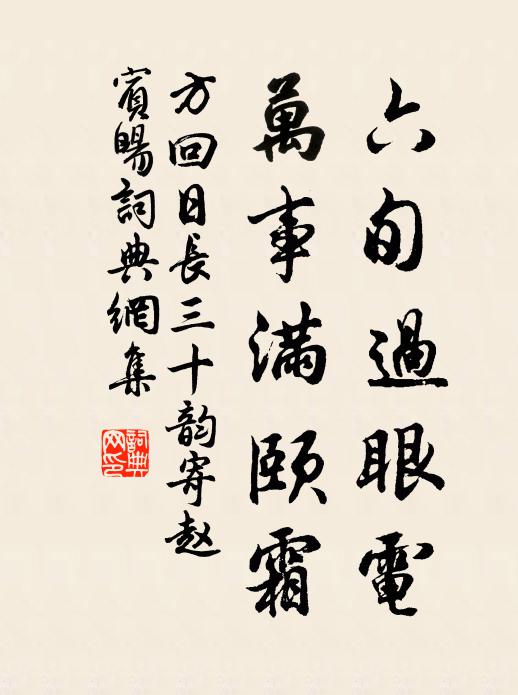 六旬過眼電
萬事滿頤霜
方回日長三十韵寄赵
賓暘詞典網集
詞典網印